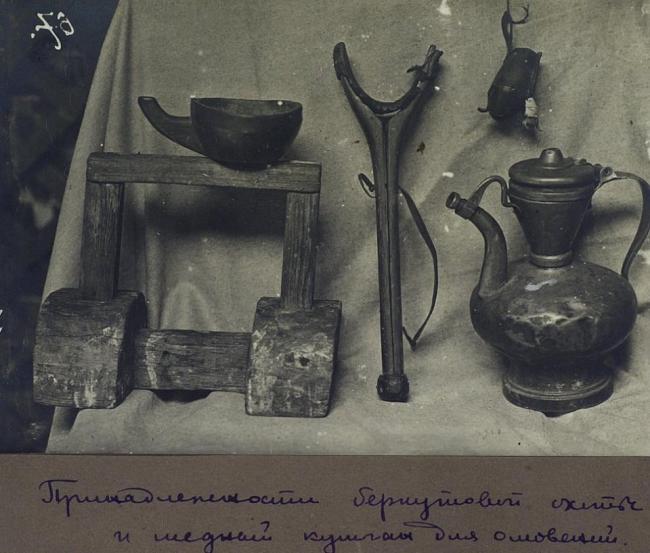 Принадлежности беркутовой охоты
и медный кумган для омовений.